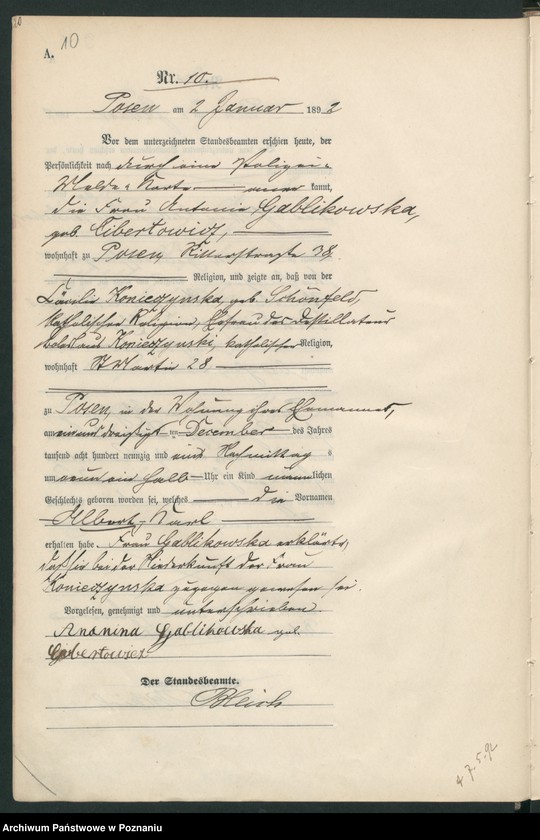 10
A.
10
Nr. 10.
Posen am 2 Januar 1892
Vor dem unterzeichneten Standesbeamten erschien heute, der
Persönlichkeit nach durch eine Polizei-
Melde-Karte anerkannt,
die Frau Antonie Gablikowska,
geb. Cibertowicz,
wohnhaft zu Posen, Ritterstraße 38
Religion, und zeigte an, daß von der
Konieczynska, geb. Schönfeld,
katholischer Religion, Ehefrau des Destillateur
Konieczynski, katholischer Religion,
wohnhaft St Martin 28
zu Posen, in der Wohnung ihres Ehemannes,
am einunddreißigsten December des Jahres
tausend acht hundert neunzig und eins Nachmittags
um neun ein halb Uhr ein Kind männlichen
Geschlechts geboren worden sei, welches die Vornamen
Albert, Karl
erhalten habe. Frau Gablikowska erklärte,
daß sie bei der Niederkunft der Frau
Konieczynska zugegen gewesen sei.
Vorgelesen, genehmigt und unterschrieben.
Gablikowska geb.
Der Standesbeamte.
4 7.5.92
Archiwum Państwowe w Poznaniu